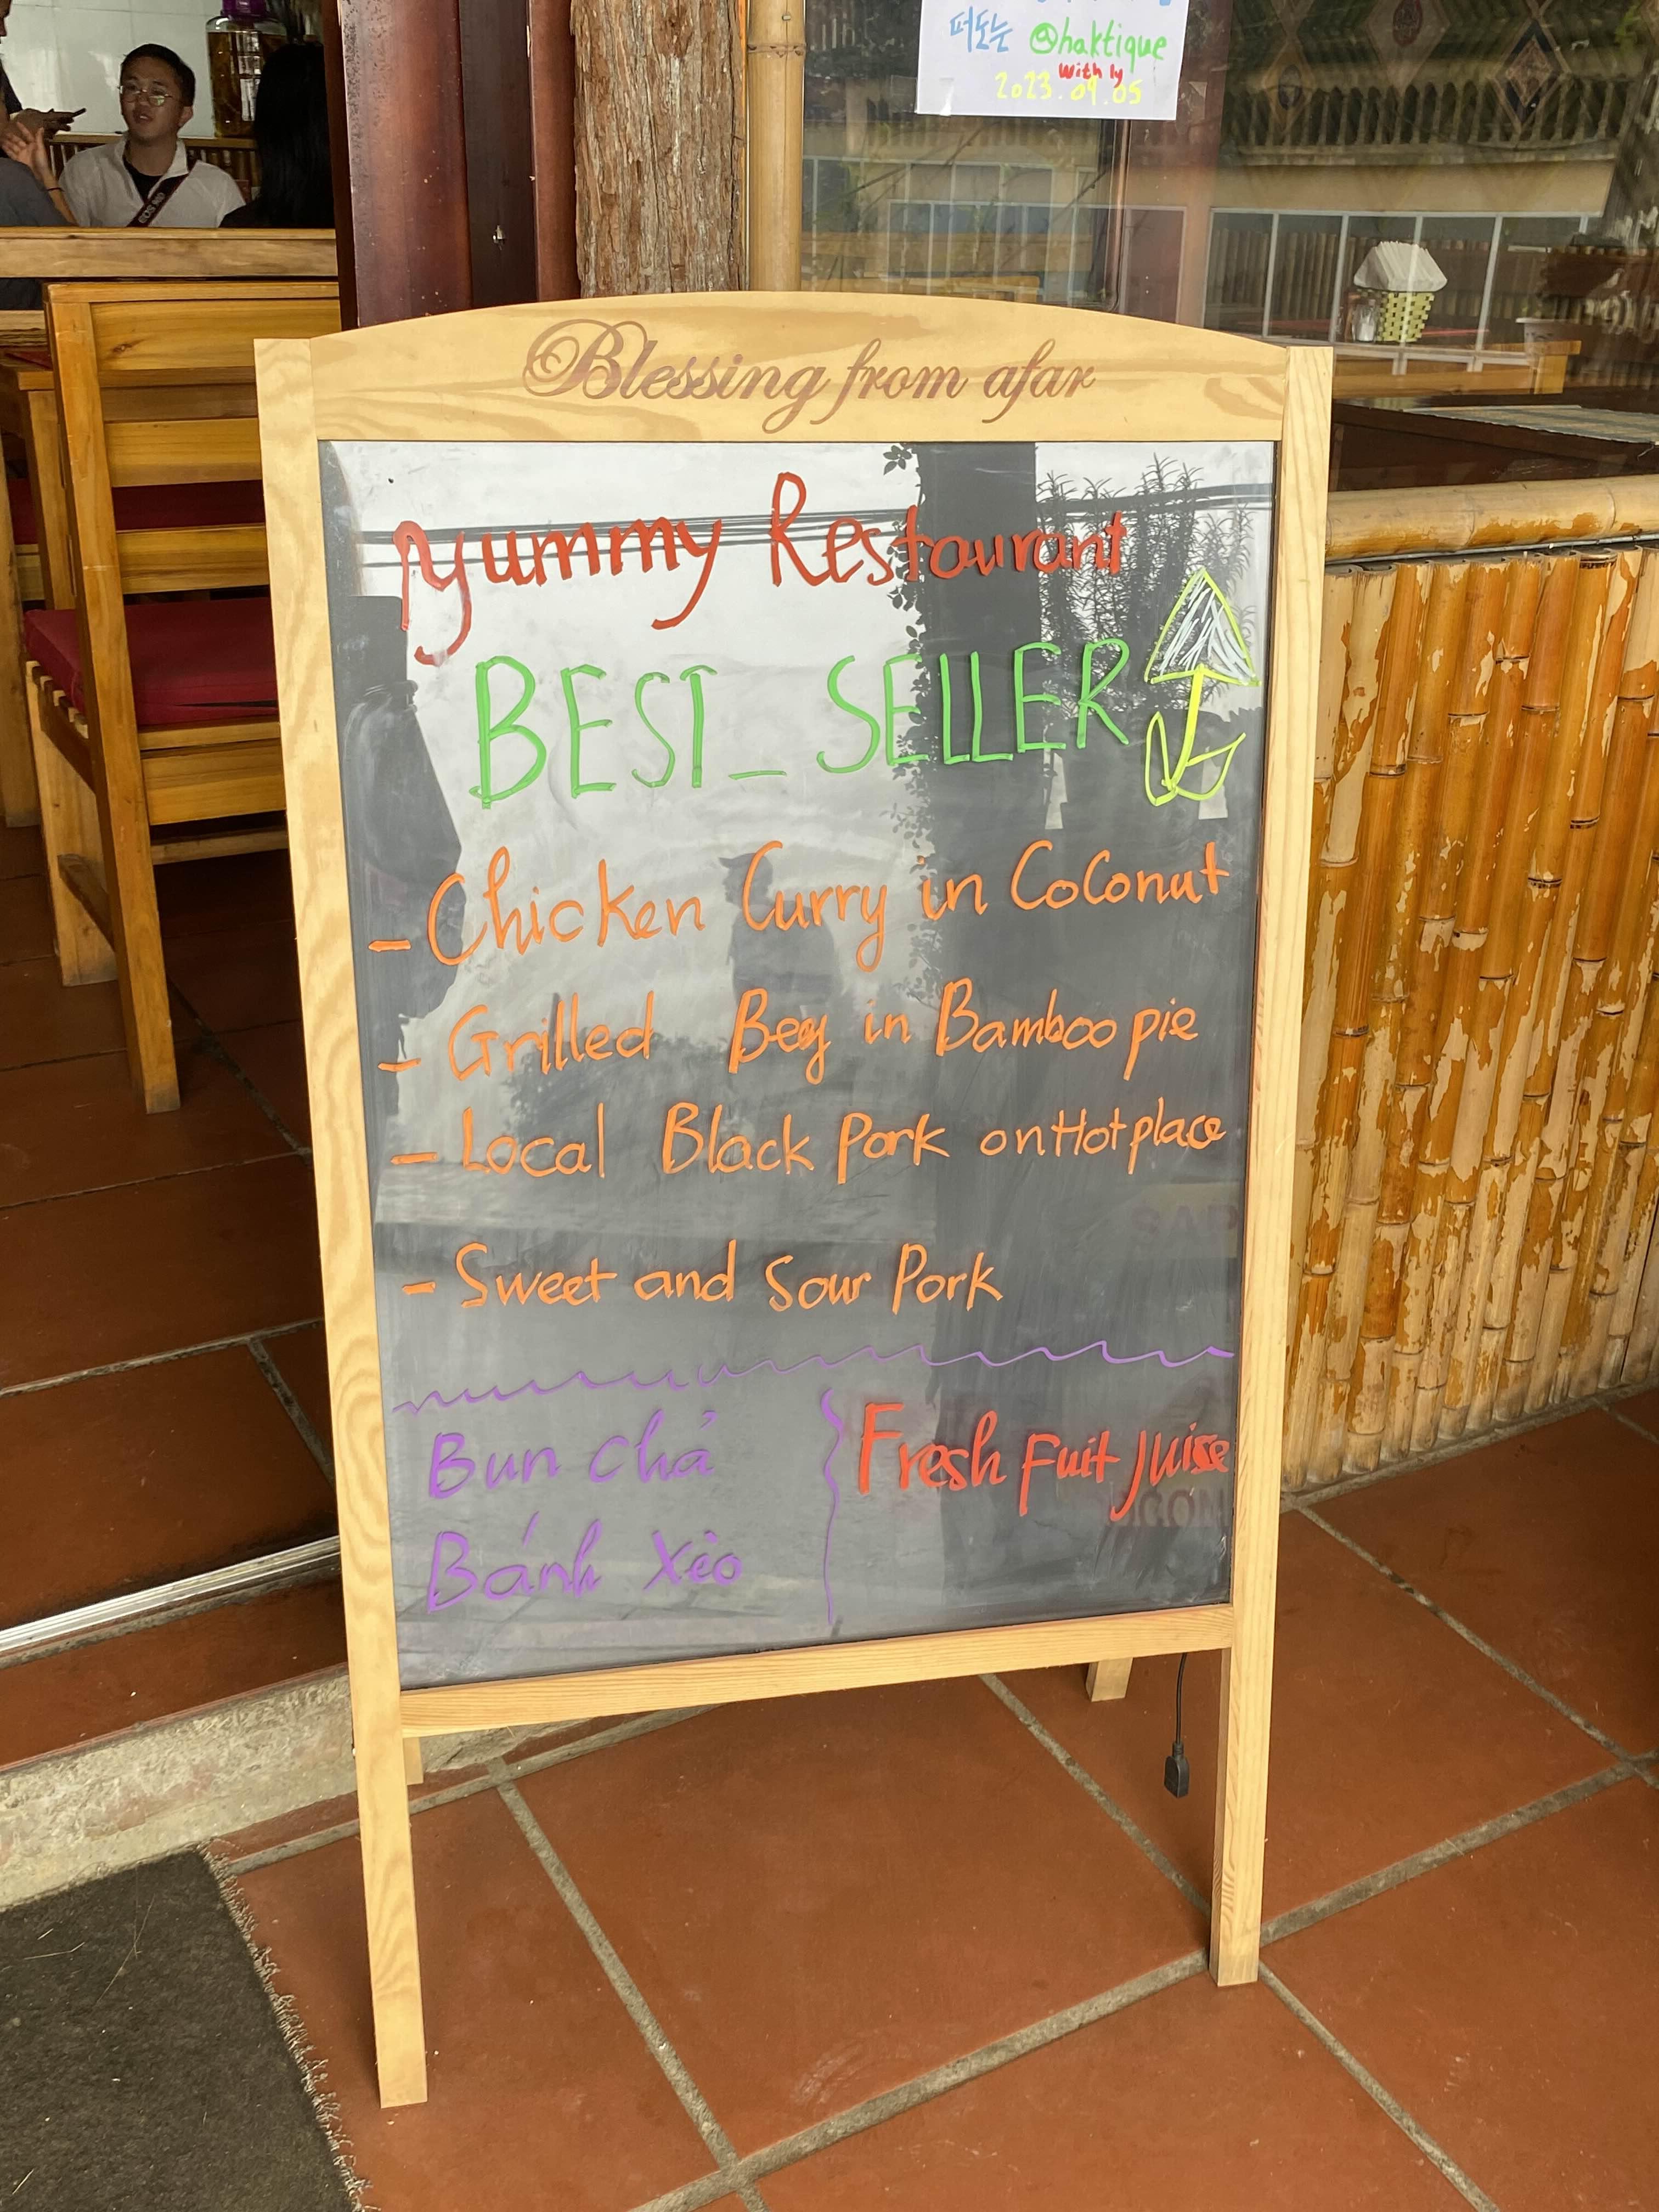 떠도는 @haktique
with ly
2023.09.05
Blessing from afar
Yummy Restaurant
BEST_SELLER
- Chicken Curry in CoConut
- Grilled Beef in Bamboo pie
- Local Black Pork on Hot place
- Sweet and Sour Pork
Bun chả
Bánh Xèo
Fresh Fuit Juise